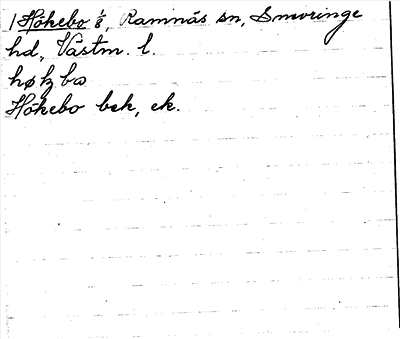 1 Hökebo i, Ramnäs sn, Snevringe
hd, Västm. l.
Hökebo bek, ek.